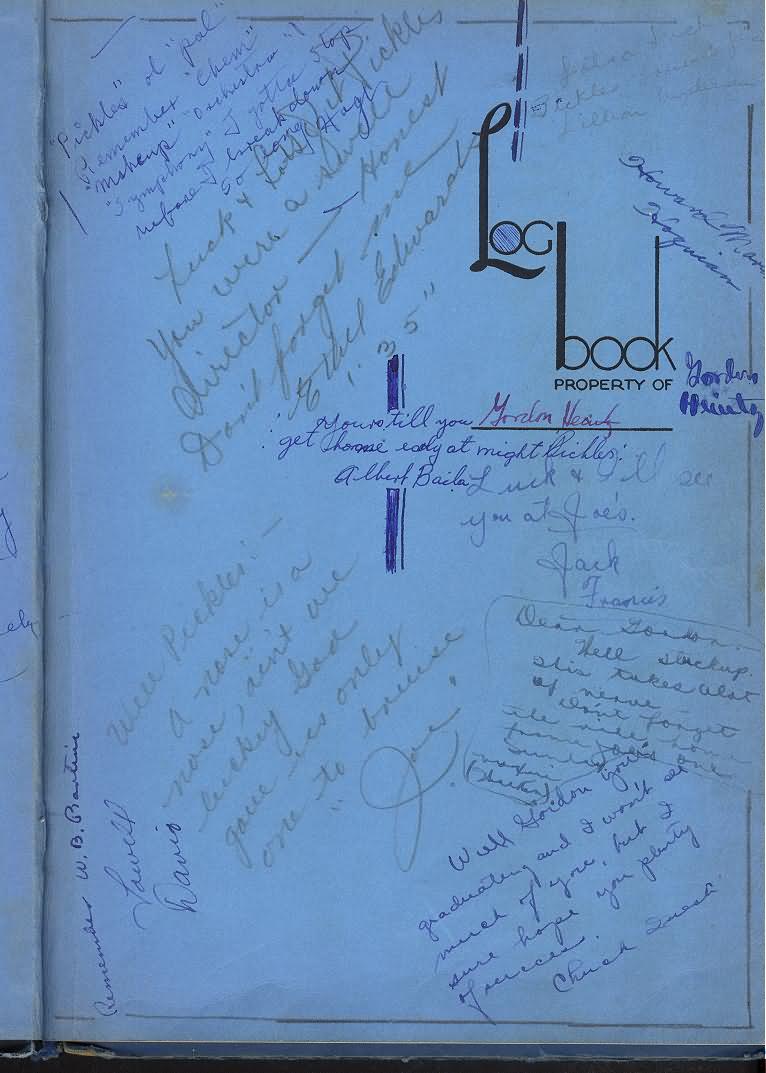 "Pickles" ol "pal"
Remember "Chem"
makeup" Orchestra"!
"Symphony" I gotta stop
before I break down
So long Hogt
Luck & Pickles
You were a swell
director — Honest
Don't forget me
Ethel Edwards
'35"
Lotsa luck
Pickles
Lillian
Howard
Hoquiam
Log
book
PROPERTY OF
Gordon
Heintz
Gordon Heintz
Yours till you
get home early at night Pickles:
Albert Baila
Luck & I'll see
you at Joe's.
Jack
Francis
Well Pickles: —
A nose is a
nose, ain't we
lucky God
gave us only
one to bruise
"Joe."
Dear Gordon.
Well
this takes alot
of nerve
Don't forget
the
from Joe's one
Well Gordon your
graduating and I won't see
much of you, but I
sure hope you plenty
of success.
Chuck
Lowell
Davis
Remember W. B.